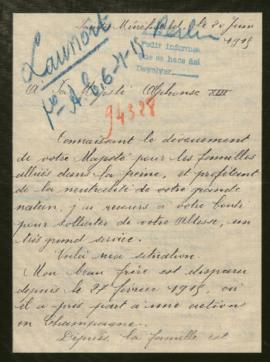 Juin
1915
Launois
Berlin
Pedir informes
que se hace así
Devolver
A Sa Majesté Alphonse XIII
94328
Connaissant le dévouement
de votre Majesté pour les familles
alliées dans la peine, et profitant
de la neutralité de votre grande
nation, j'ai recours à votre bonté
pour solliciter de votre Altesse, un
très grand service.
Voilà ma situation.
Mon beau frère est disparu
depuis le 27 février 1915, où
il a pris part à une action
en Champagne.
Depuis, la famille est